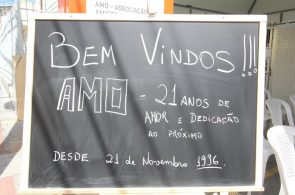 AMO - ASSOCIAÇÃO
BEM VINDOS!!!
AMO - 21 ANOS DE
AMOR E DEDICAÇÃO
AO PRÓXIMO
DESDE 21 de Novembro 1996.